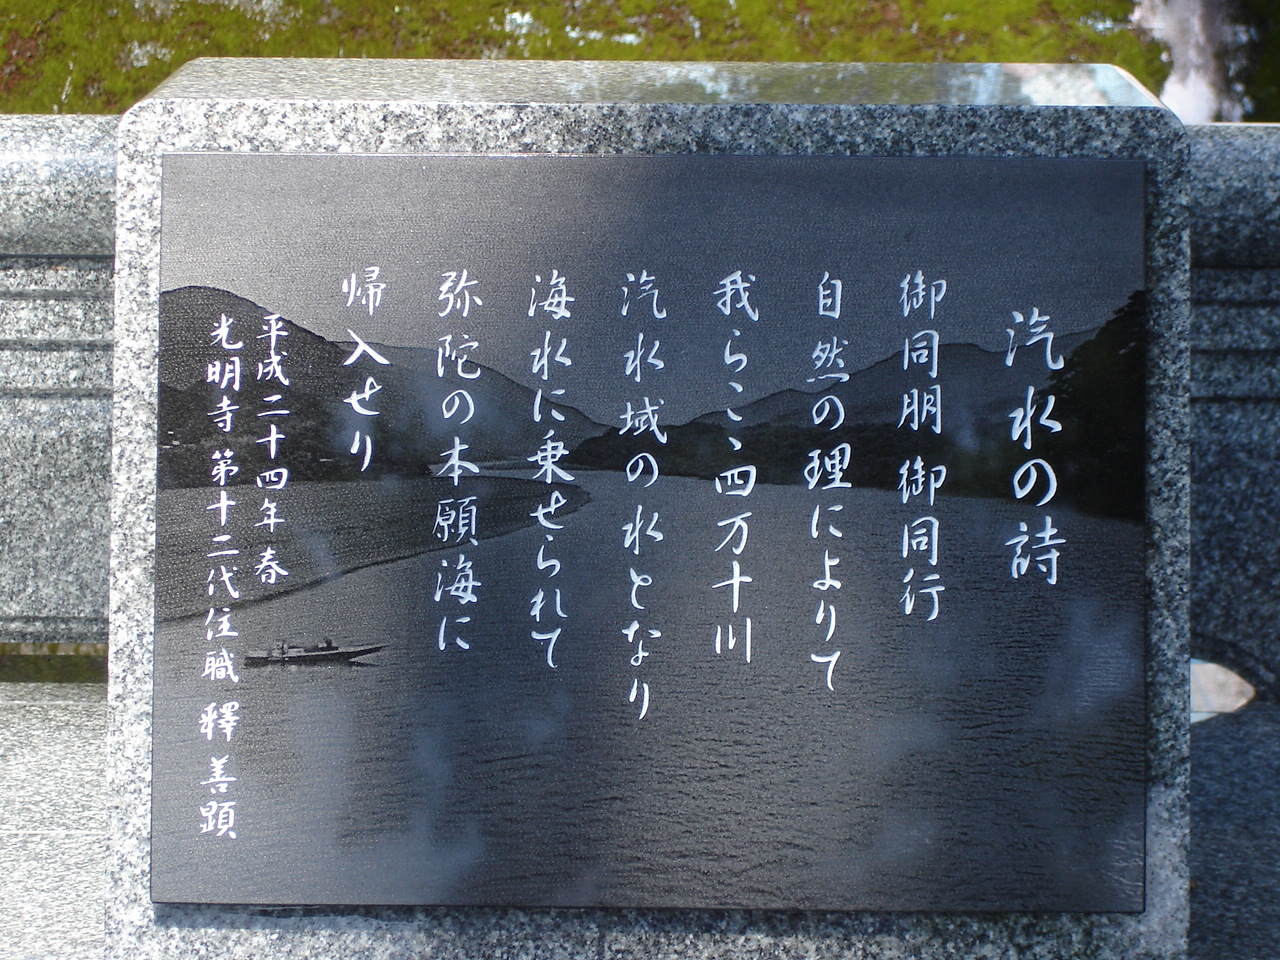 汽水の詩
御同朋 御同行
自然の理によりて
我らこゝ四万十川
汽水域の水となり
海水に乗せられて
弥陀の本願海に
帰入せり
平成二十四年春
光明寺 第十二代住職 釋善顕